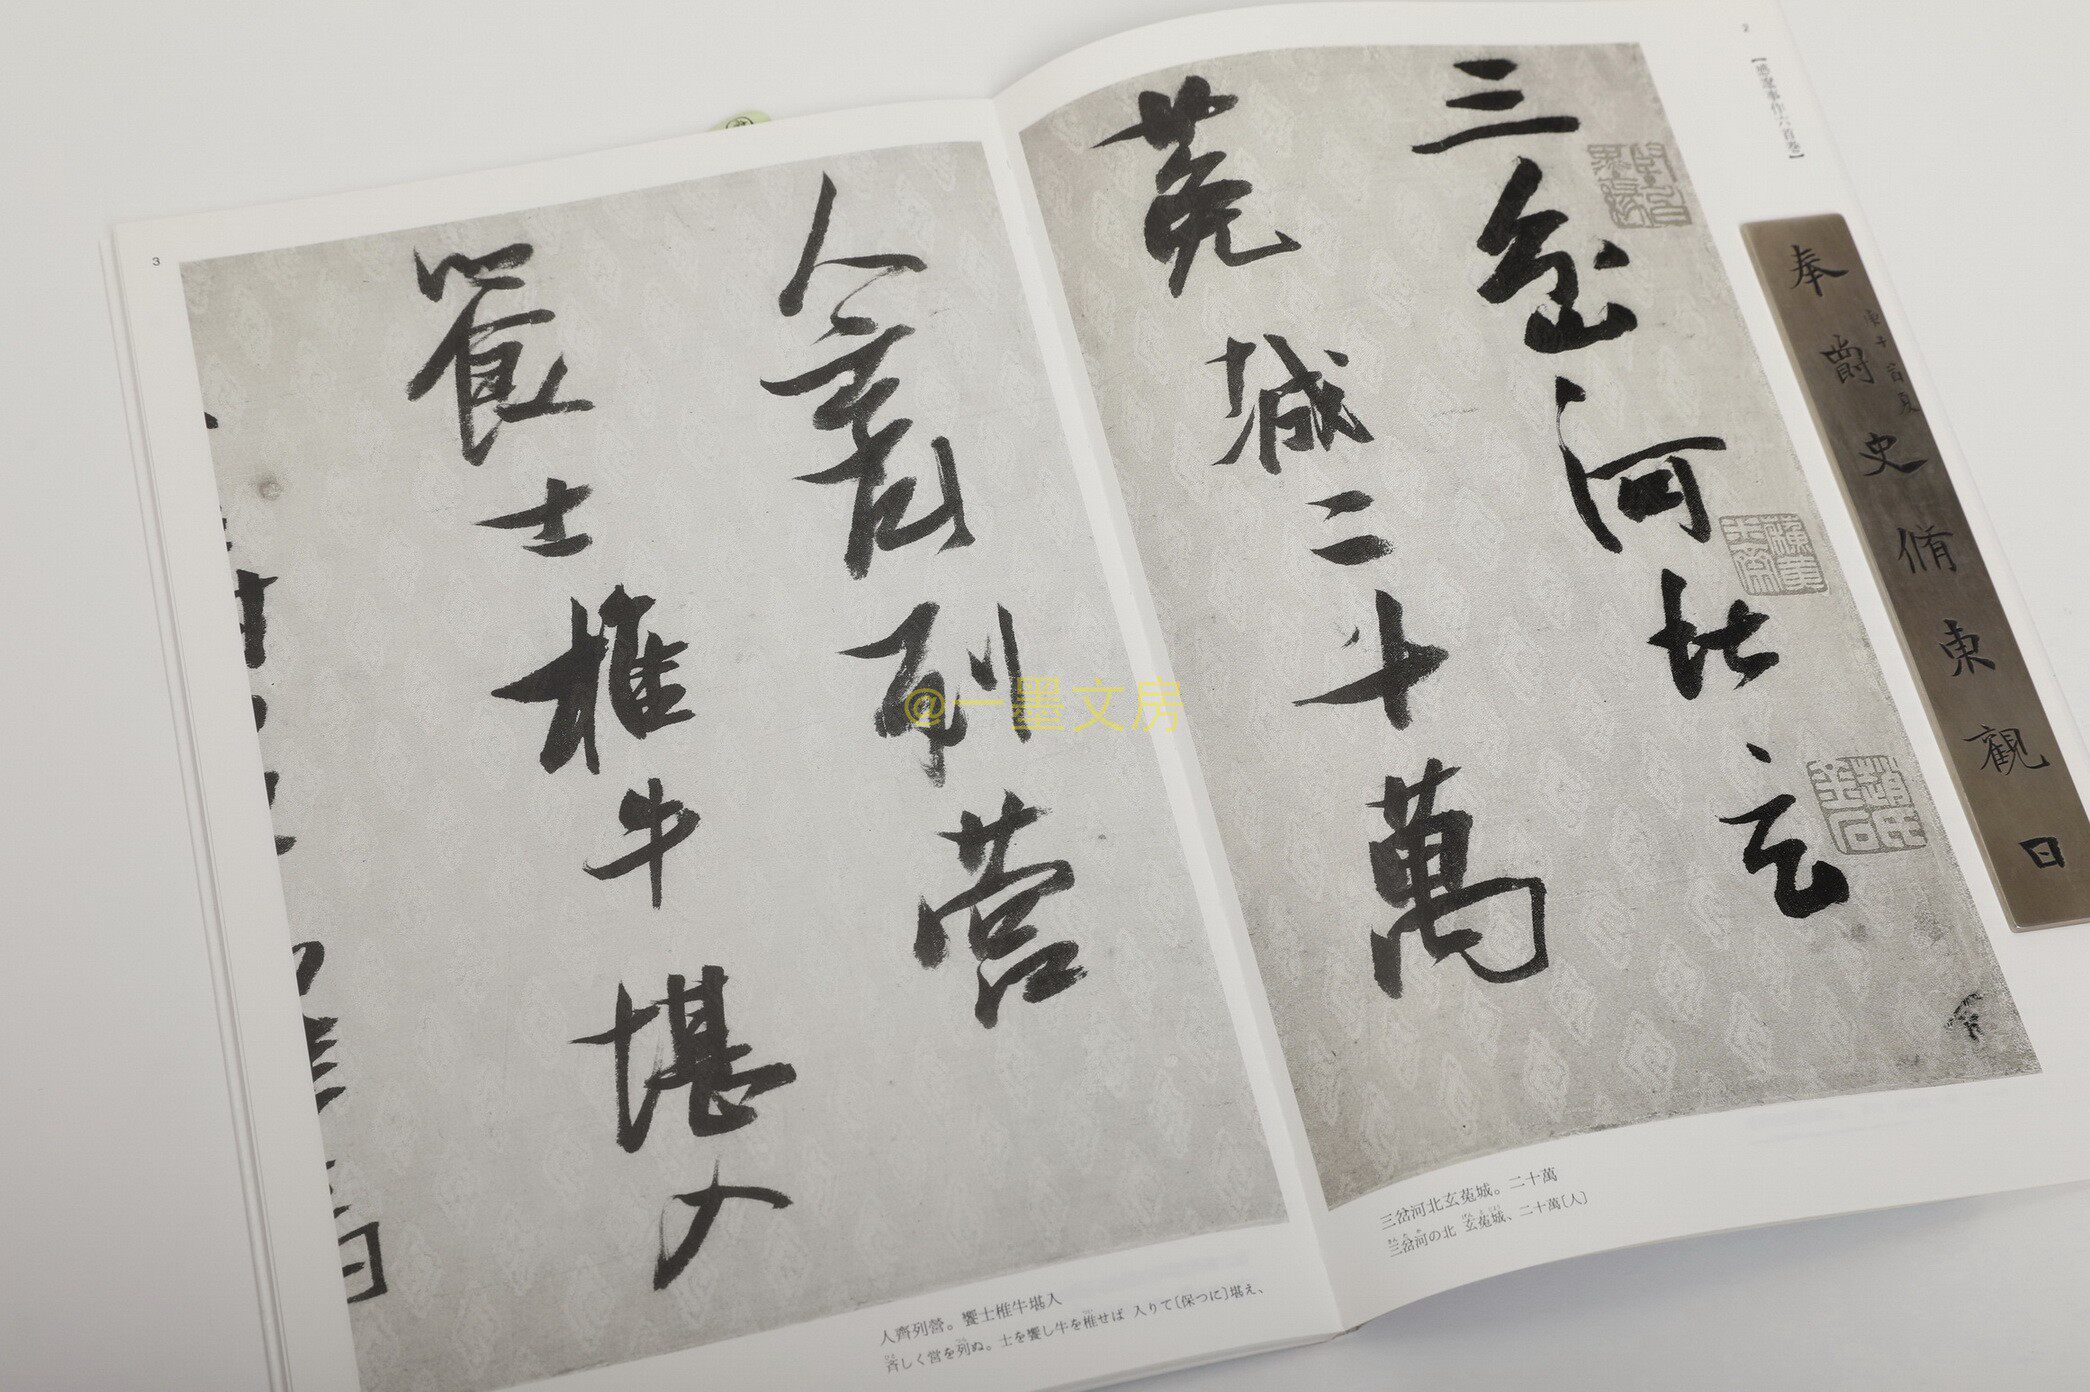 2
【感遼事作六首巻】
奉爵史脩東觀日
三岔河北玄
菟城二十萬
三岔河北玄菟城。二十萬
三岔河の北 玄菟城、二十萬〔人〕
3
人齊列營
饗士椎牛堪入
人齊列營。饗士椎牛堪入
斉しく営を列ぬ。士を饗し牛を椎せば 入りて〔保つに〕堪え、
@一墨文房